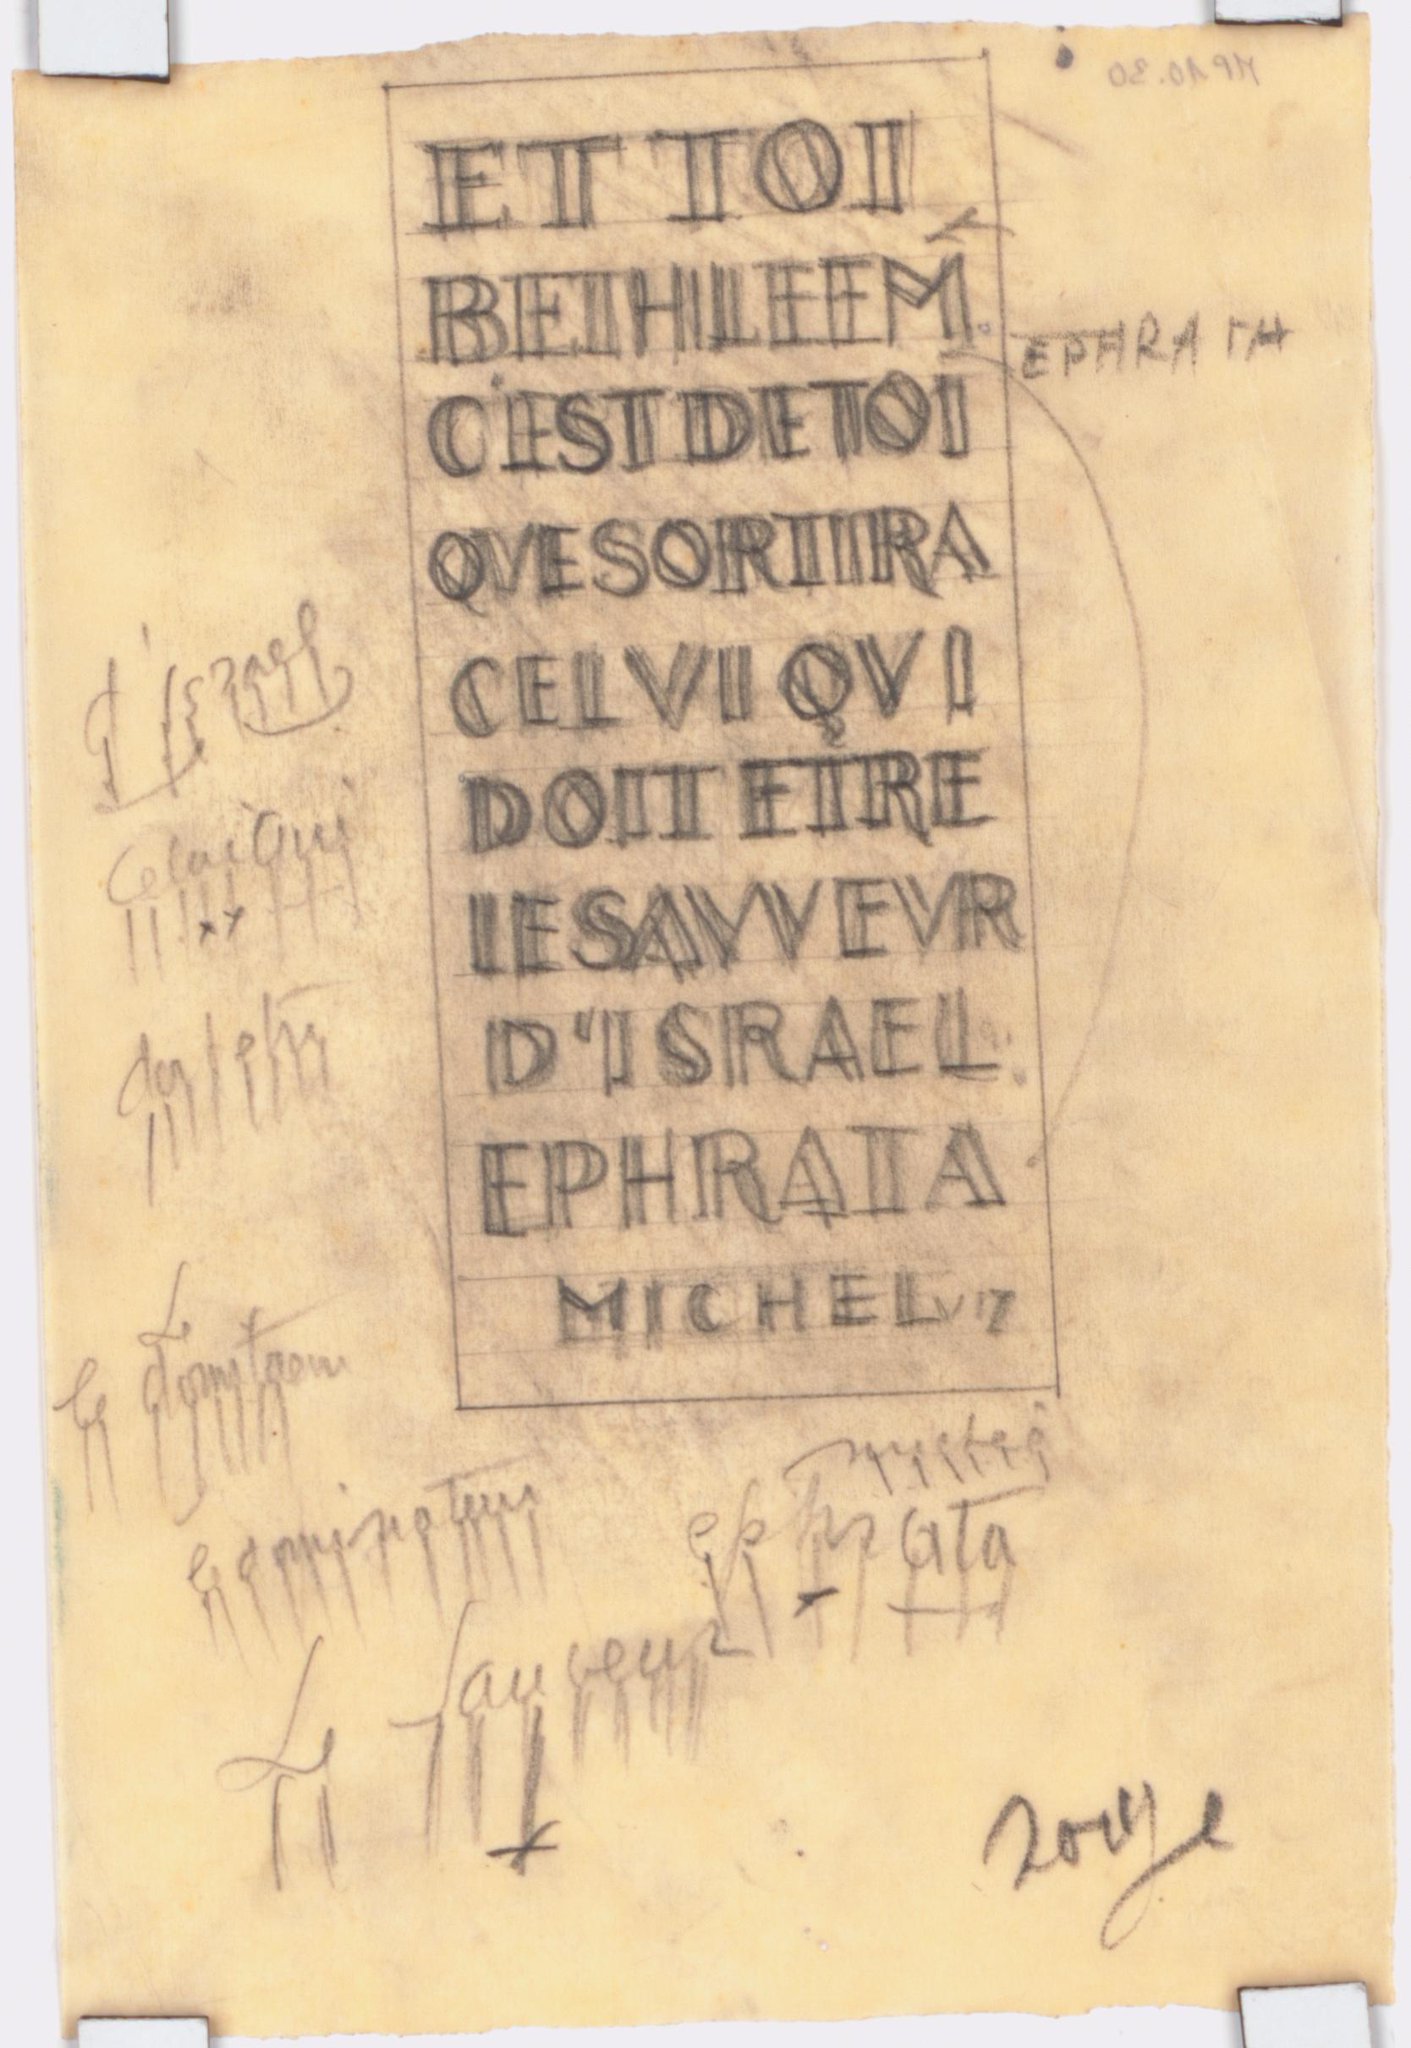 ET TOI
BETHLEEM.
EPHRATA
C'EST DE TOI
QVE SORTIRA
CELVI QVI
DOIT ETRE
LE SAVVEVR
D'ISRAEL.
EPHRATA
MICHEL V 17
d'Israel
Celui Qui
doit etre
L
le dominateur
ephrata
Le Sauveur
rouge